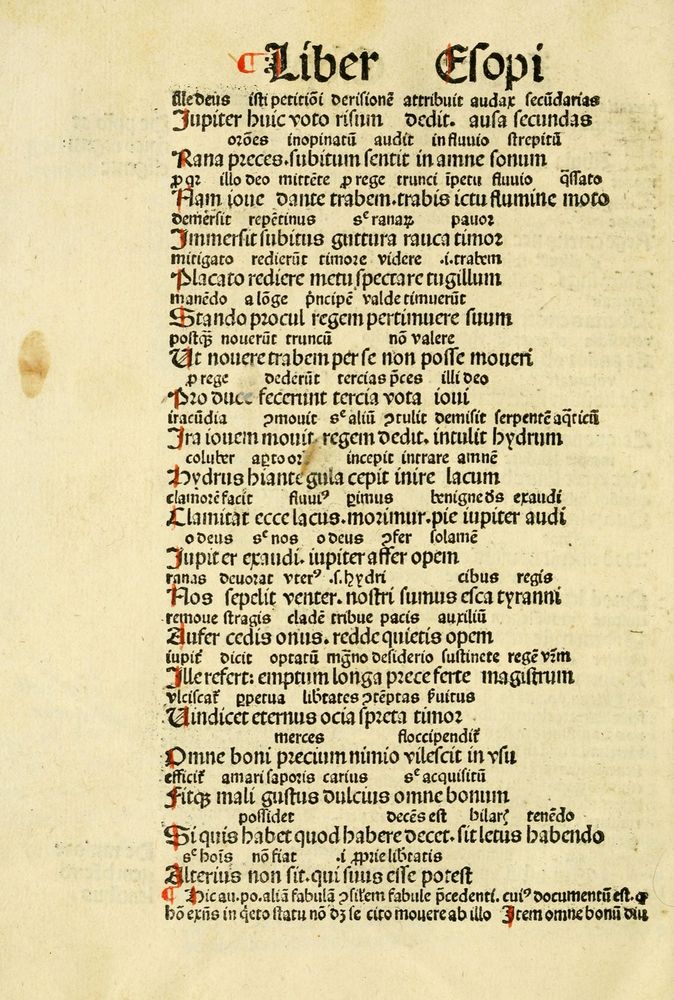 ¶ Liber Esopi
Ille deus isti petitiõi derisionẽ attribuit audax secũdarias
Jupiter huic voto risum dedit. ausa secundas
orões inopinatũ audit in fluvio strepitũ
Rana preces. subitum sentit in amne sonum
ꝓ qr illo deo mittẽte ꝓ rege trunci ĩpetu fluvio q̃ssato
Nam ioue dante trabem. trabis ictu flumine moto
demersit repẽtinus sꝫ ranaꝝ pavor
Immersit subitus guttura rauca timor
mitigato redierũt timore videre .i. trabem
Placato rediere metu spectare tugillum
manẽdo a lõge pñcipẽ valde timuerũt
Stando procul regem pertimuere suum
postq̃ꝫ noverũt truncũ nõ valere
Ut novere trabem per se non posse moveri
ꝓ rege dederũt tercias pces illi deo
Pro duce fecerunt tercia vota ioui
iracũdia ꝯmouit sꝫ aliũ ꝯtulit demisit serpentẽ aq̃ticũ
Ira iouem mouit. regem dedit. intulit hydrum
coluber apto or incepit intrare amnẽ
Hydrus hiante gula cepit inire lacum
clamorẽ facit fluviꝰ pimus benigne ds exaudi
Clamitat ecce lacus. morimur. pie iupiter audi
o deus sꝫ nos o deus ꝯfer solamẽ
Jupiter exaudi. iupiter affer opem
ranas devorat vterꝰ .s. hydri cibus regis
Nos sepelit venter. nostri sumus esca tyranni
remove stragis cladẽ tribue pacis auxiliũ
Aufer cedis onus. redde quietis opem
iupit̃ dicit optatũ mgño desiderio sustinete regẽ vr̃m
Ille refert: emptum longa prece ferte magistrum
vlciscat̃ ꝑpetua lib̃tates ꝯtẽptas ẽuitus
Uindicet eternus ocia spreta timor
merces floccipendit̃
Omne boni precium nimio vilescit in vsu
efficit̃ amari saporis carius sꝫ acquisitũ
Fitqꝫ mali gustus dulcius omne bonum
possidet decẽs est hilar tenẽdo
Si quis habet quod habere decet. sit letus habendo
sꝫ hoĩs nõ fiat .i ꝓprie lib̃tatis
Alterius non sit. qui suus esse potest
¶ Hic au. po. aliã fabulã ꝯsil̃em fabule p̃cedenti. cuiꝰ documentũ est. ꝙ
hõ exñs in q̃eto statu nõ dꝫ se cito movere ab illo Item omne bonũ diu